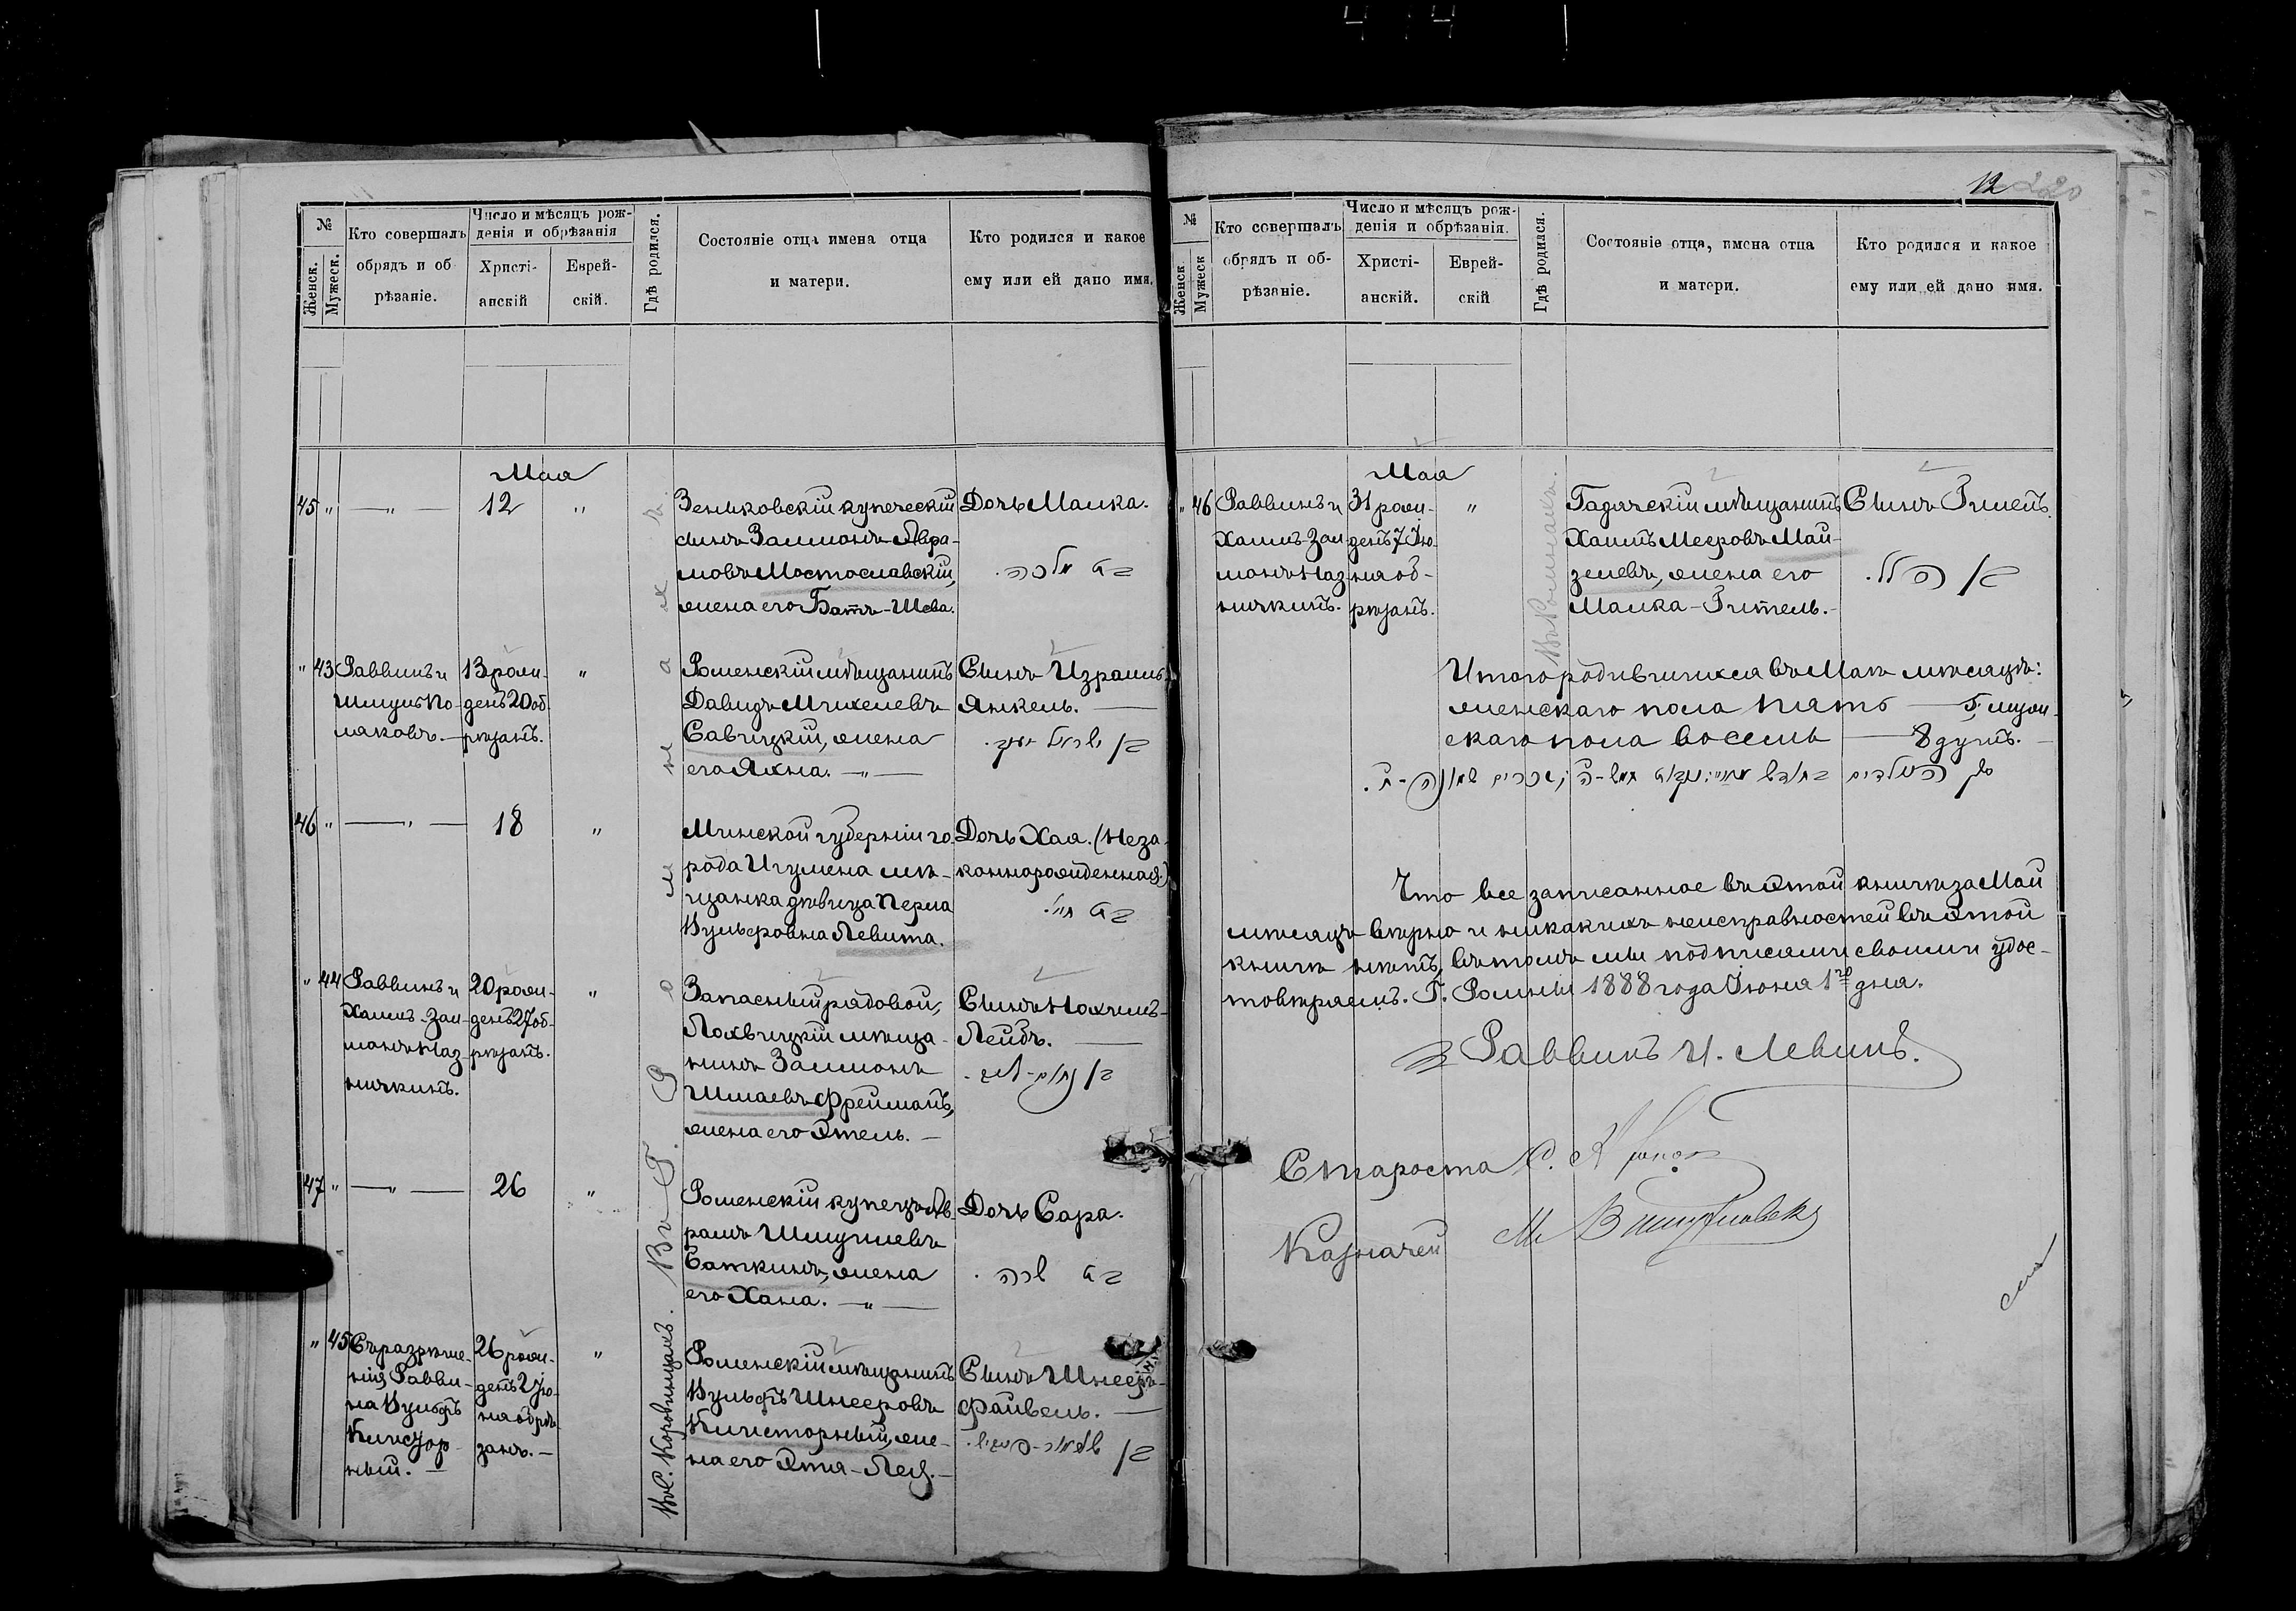 12 220
№
Женск.
Мужеск.
Кто совершалъ
обрядъ и об-
рѣзаніе.
Число и мѣсяцъ рож-
денія и обрѣзанія
Христі-
анскій
Еврей-
скій.
Гдѣ родился.
Состояніе отца имена отца
и матери.
Кто родился и какое
ему или ей дано имя.
Мая
45 " — " — 12 "
Зеньковскій купеческій
сынъ Залмонъ Авра-
мовъ Мостославскій,
жена его Батъ-Шева.
Дочь Малка.
בת מלכה.
" 43
Раввинъ и
Шмуль По-
ляковъ.—
13 рож-
денъ 20 об-
рѣзанъ.
"
Роменскій мѣщанинъ
Давидъ Михелевъ
Савицкій, жена
его Яхна. — " —
Сынъ Израиль
Янкель. —
בן ישראל יעקב.
46 " — " — 18 "
Минской губерніи го-
рода Игумена мѣ-
щанка дѣвица Перла
Вульфовна Левита.
Дочь Хая. (Неза-
коннорожденная)
בת חי'.
" 44
Раввинъ и
Хаимъ-Зал-
монъ Наз-
ничкинъ.
20 рож-
денъ 27 об-
рѣзанъ.
"
Запасный рядовой,
Лохвицкій мѣща-
нинъ Залмонъ
Шмаевъ Фрейманъ,
жена его Этель. —
Сынъ Нохимъ-
Лейбъ. —
בן נחום-ליב.
47 " — " — 26 "
Роменскій купецъ Ав-
рамъ Шмуилевъ
Саткинъ, жена
его Хана. — " —
Дочь Сара.
בת שרה.
" 45
Съ разрѣше-
нія Равви-
на Вульфъ
Кишстор-
ный. —
26 рож-
денъ 2 Ію-
ня обрѣ-
занъ. —
"
Роменскій мѣщанинъ
Вульфъ Шнееровъ
Кишсторный, же-
на его Этя-Лея. —
Сынъ Шнееръ-
Файвель. —
בן שניאור-פייוויל.
Въ Г. Ромнахъ.
Въ С. Коровинцахъ.
№
Женск
Мужеск
Кто совершалъ
обрядъ и об-
рѣзаніе.
Число и мѣсяцъ рож-
денія и обрѣзанія.
Христі-
анскій.
Еврей-
скій
Гдѣ родился.
Состояніе отца, имена отца
и матери.
Кто родился и какое
ему или ей дано имя.
Мая
" 46
Раввинъ и
Хаимъ-Зал-
монъ Наз-
ничкинъ.
31 рож-
денъ 7 Ію-
ня об-
рѣзанъ.
"
Въ Ромнахъ.
Гадячскій мѣщанинъ
Хаимъ Мееровъ Май-
зелевъ, жена его
Малка-Гитель. —
Сынъ Гилель.
בן הלל.
Итого родившихся въ Маѣ мѣсяцѣ:
женскаго пола пять — 5, муж-
скаго пола восемь — 8 душъ. —
Что все записанное въ этой книгѣ за Май
мѣсяцъ вѣрно и никакихъ неисправностей въ этой
книгѣ нѣтъ, въ томъ мы подписями своими удос-
товѣряемъ. Г. Ромны 1888 года Іюня 1го дня.
Раввинъ И. Левинъ.
Староста С.
Казначей М